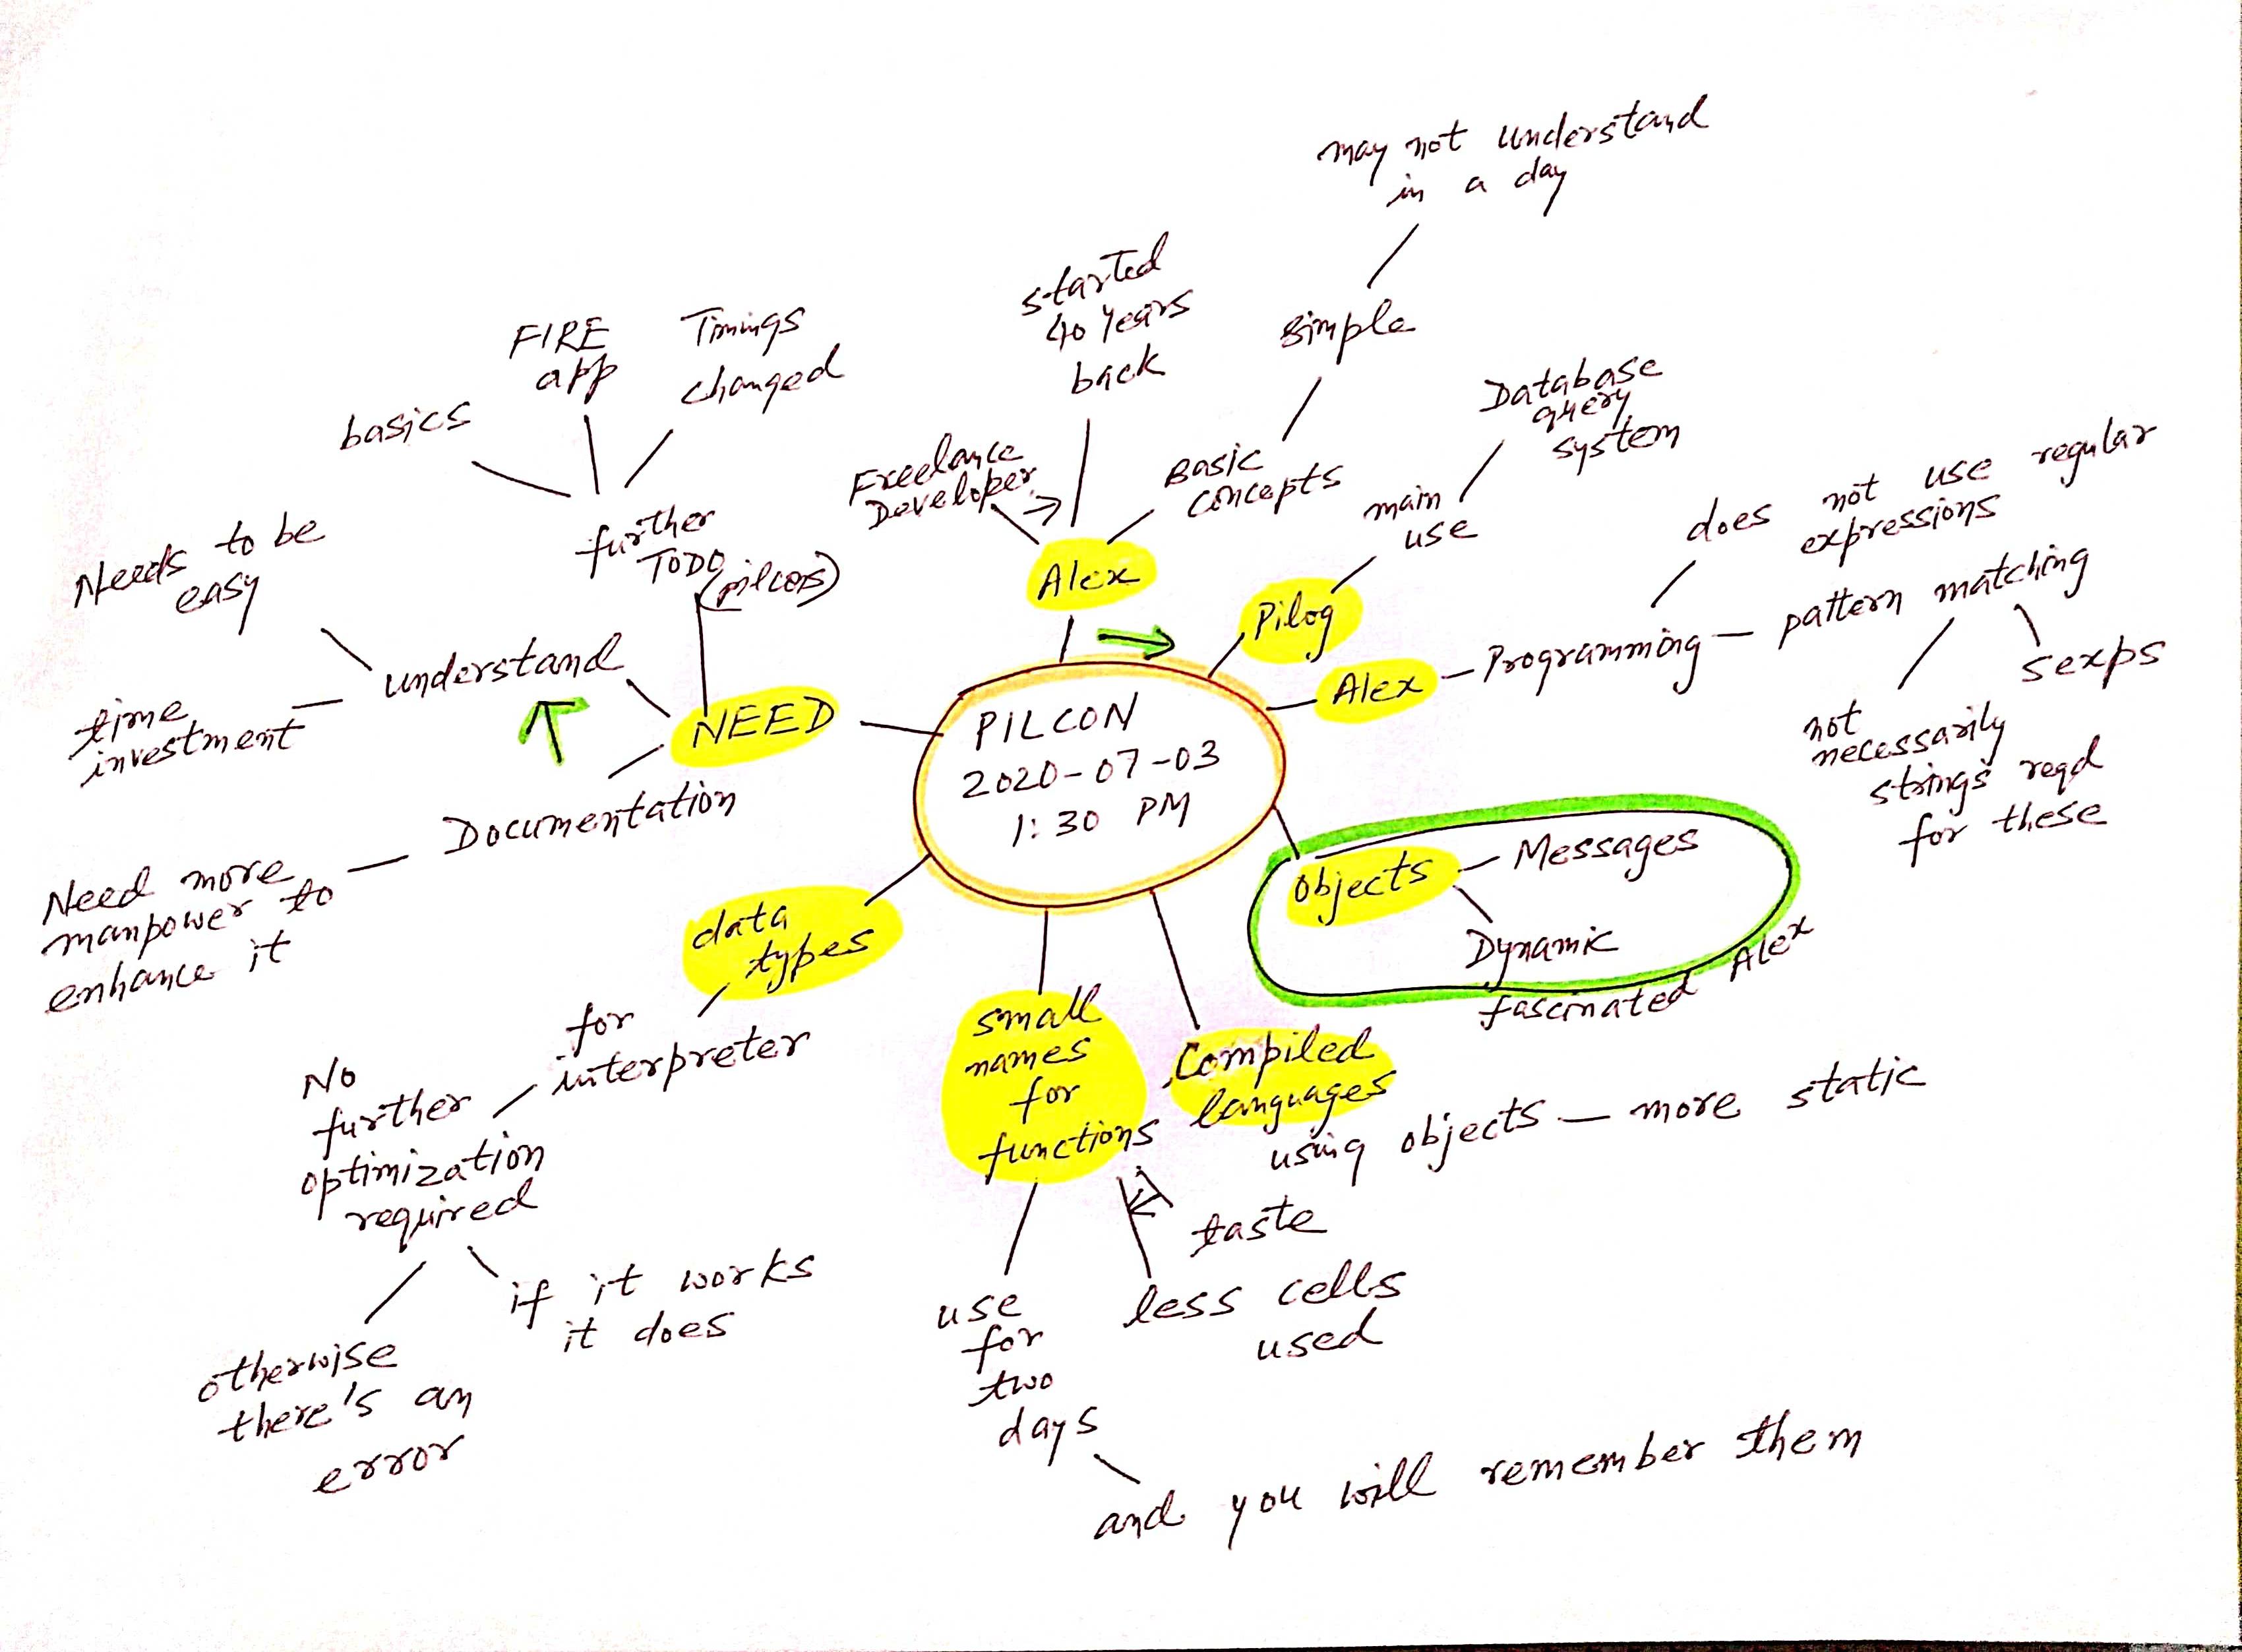 PILCON
2020-07-03
1:30 PM
Alex
Freelance
Developer
started
40 Years
back
Basic
concepts
simple
may not understand
in a day
Pilog
main
use
Database
query
system
Alex
Programming
does not use regular
expressions
pattern matching
sexps
not
necessarily
strings reqd
for these
objects
Messages
Dynamic
fascinated Alex
Compiled
languages
using objects — more static
small
names
for
functions
taste
less cells
used
use
for
two
days
and you will remember them
data
types
for
interpreter
No
further
optimization
required
if it works
it does
otherwise
there's an
error
NEED
Documentation
Need more
manpower to
enhance it
understand
time
investment
Needs to be
easy
further
TODO
basics
FIRE
app
Timings
changed